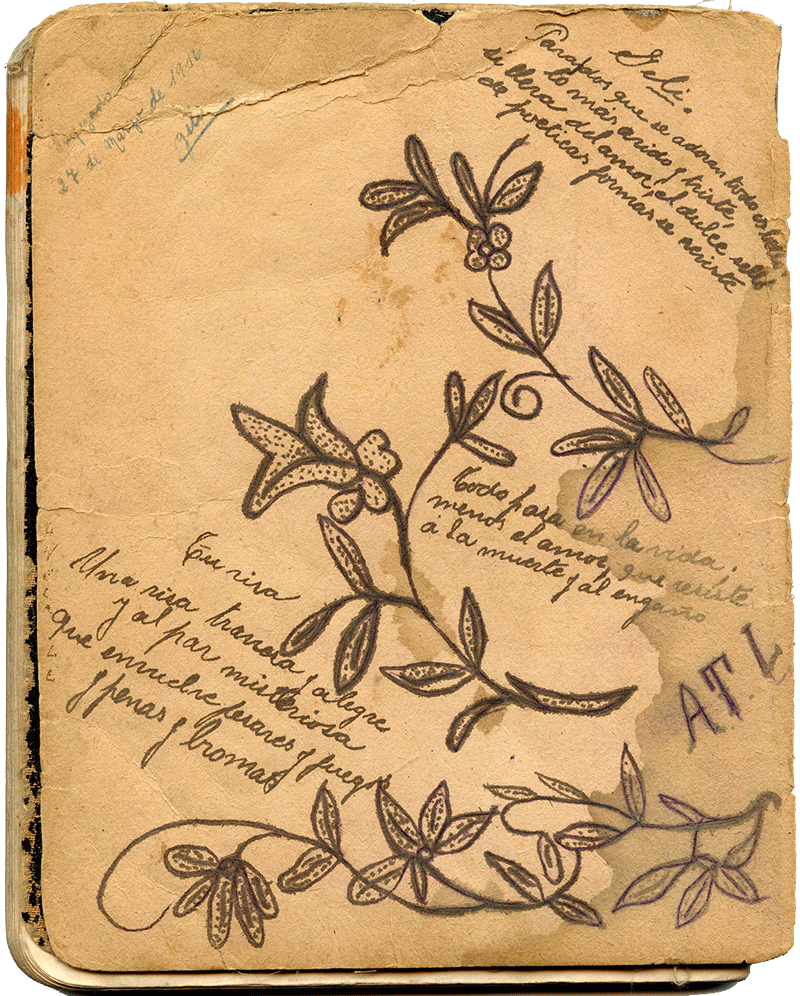 27 de Marzo de 1916
Geli
Geli.
Para los que se adoran todo es bello
lo mas arido y triste,
si lleva del amor, el dulce sello
de poeticas formas se reviste
Todo pasa en la vida,
menos el amor, que resiste
á la muerte y al engaño
Tu risa
Una risa traviesa y alegre
y al par misteriosa
que envuelve pesares y juegos
y penas y bromas
ATL